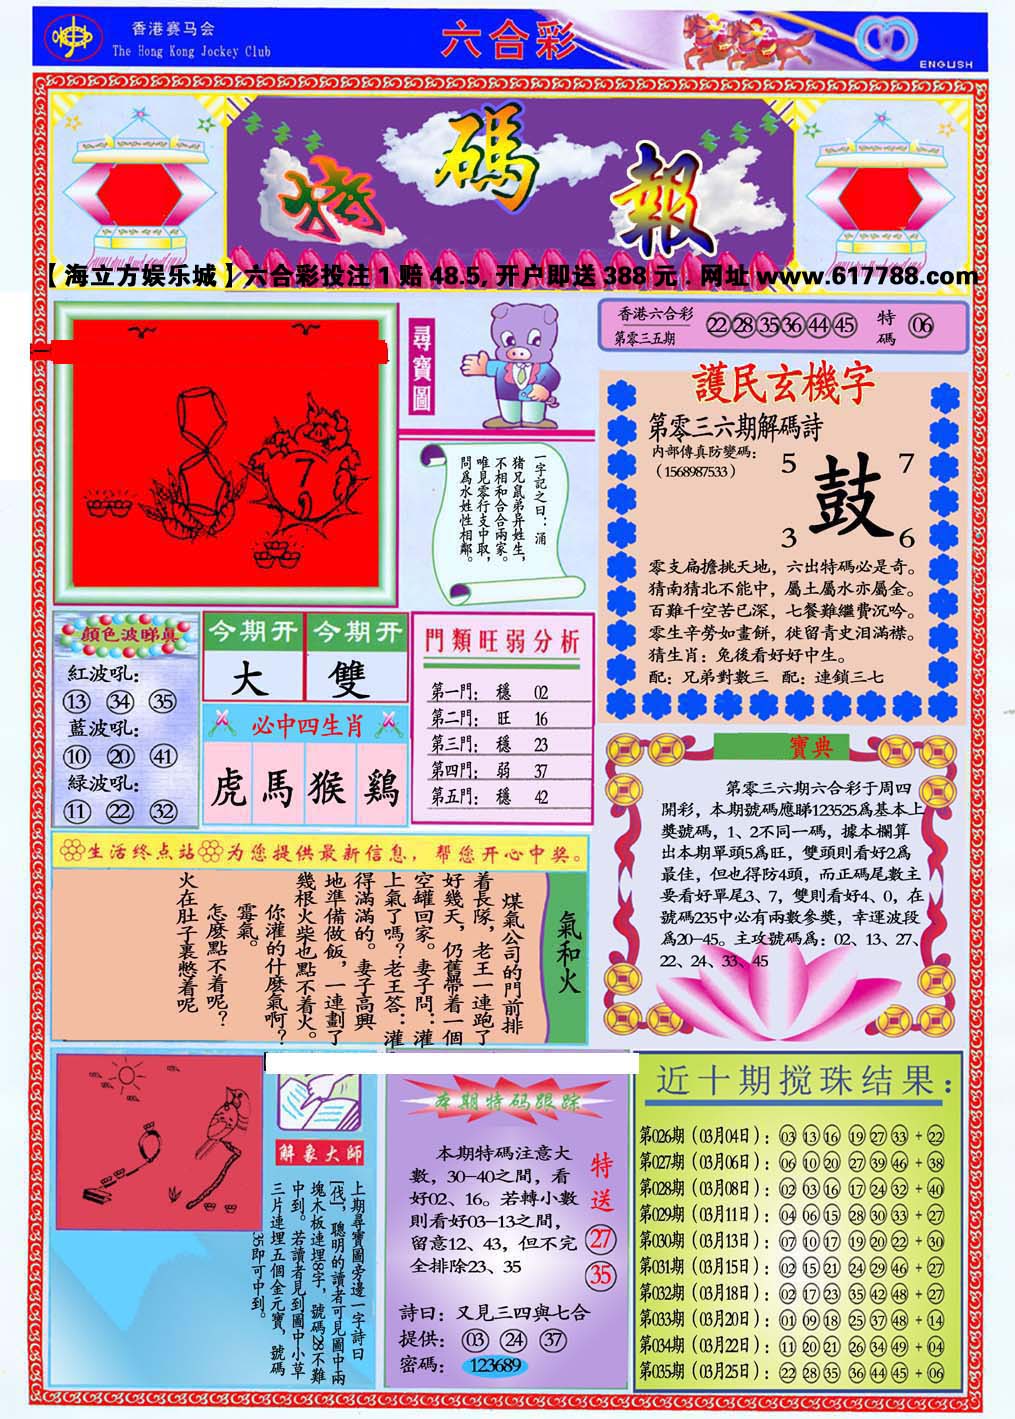 香港赛马会
The Hong Kong Jockey Club
六合彩
ENGLISH
特碼報
【海立方娱乐城】六合彩投注1赔48.5,开户即送388元.网址www.617788.com
尋寶圖
7
一字記之曰：涌
猪兄鼠弟异姓生，
不相和合合兩家。
唯見零行支中取，
問爲水姓性相鄰。
香港六合彩
第零三五期
22 28 35 36 44 45
特碼
06
護民玄機字
第零三六期解碼詩
内部傳真防變碼：
（1568987533）
5 7
鼓
3 6
零支扁擔挑天地，六出特碼必是奇。
猜南猜北不能中，屬土屬水亦屬金。
百難千空苦已深，七餐難繼費沉吟。
零生辛勞如畫餅，徙留青史泪滿襟。
猜生肖：兔後看好好中生。
配：兄弟對數三 配：連鎖三七
顏色波睇真
紅波吼：
13 34 35
藍波吼：
10 20 41
緑波吼：
11 22 32
今期开 今期开
大 雙
必中四生肖
虎 馬 猴 鷄
門類旺弱分析
第一門： 穩 02
第二門： 旺 16
第三門： 穩 23
第四門： 弱 37
第五門： 穩 42
寶典
第零三六期六合彩于周四
開彩，本期號碼應睇123525爲基本上
獎號碼，1、2不同一碼，據本欄算
出本期單頭5爲旺，雙頭則看好2爲
最佳，但也得防4頭，而正碼尾數主
要看好單尾3、7，雙則看好4、0，在
號碼235中必有兩數參獎，幸運波段
爲20-45。主攻號碼爲：02、13、27、
22、24、33、45
生活终点站 为您提供最新信息，帮您开心中奖。
氣和火
煤氣公司的門前排
着長隊，老王一連跑了
好幾天，仍舊帶着一個
空罐回家。妻子問：灌
上氣了嗎？老王答：灌
得滿滿的。妻子高興
地準備做飯，一連劃了
幾根火柴也點不着火。
你灌的什麼氣啊？
霉氣。
怎麼點不着呢？
火在肚子裏憋着呢
解象大師
上期尋寶圖旁邊一字詩曰
[伐]，聰明的讀者可見圖中兩
塊木板連埋8字，號碼28不難
中到。若讀者見到圖中小草
三片連埋五個金元寶，號碼
35即可中到。
本期特码跟踪
本期特碼注意大
數，30-40之間，看
好02、16。若轉小數
則看好03-13之間，
留意12、43，但不完
全排除23、35
特送
27
35
詩曰：又見三四與七合
提供：03 24 37
密碼：123689
近十期搅珠结果：
第026期（03月04日）：03 13 16 19 27 33 + 22
第027期（03月06日）：06 10 20 27 39 46 + 38
第028期（03月08日）：02 03 16 17 24 32 + 40
第029期（03月11日）：04 06 15 28 30 33 + 27
第030期（03月13日）：07 10 17 19 20 22 + 30
第031期（03月15日）：02 15 21 24 29 46 + 27
第032期（03月18日）：02 17 23 35 42 48 + 27
第033期（03月20日）：01 09 18 25 37 48 + 14
第034期（03月22日）：11 20 21 26 34 49 + 04
第035期（03月25日）：22 28 35 36 44 45 + 06